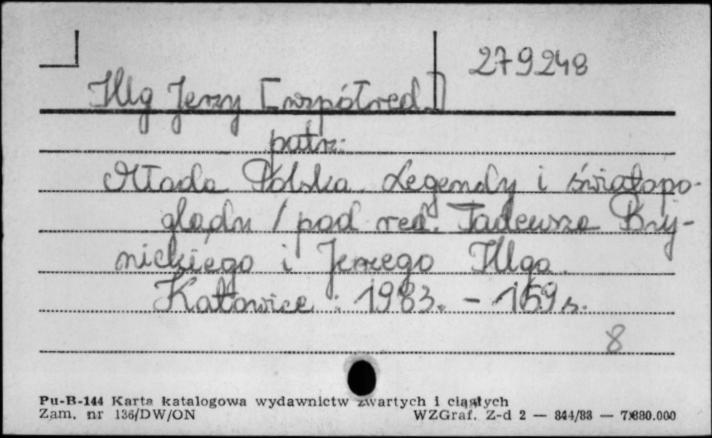 279248
Illg Jerzy [współred.]
patrz:
Młoda Polska. Legendy i światopo-
glądu / pod red. Tadeusza Bzy-
nickiego i Jerzego Illga.
Katowice : 1983. - 159 s.
8
Pu-B-144 Karta katalogowa wydawnictw zwartych i ciągłych
Zam. nr 136/DW/ON WZGraf. Z-d 2 — 844/83 — 7.880.000